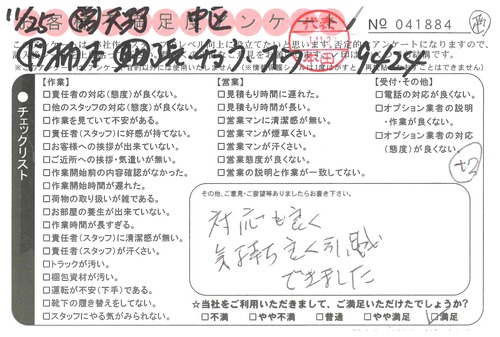 11/25
中区
お客様満足度アンケート
代表
No 041884
9/28
チェックリスト
【作業】
□責任者の対応(態度)が良くない。
□他のスタッフの対応(態度)が良くない。
□作業を見ていて不安がある。
□責任者(スタッフ)に好感が持てない。
□お客様への挨拶が出来ていない。
□ご近所への挨拶・気遣いが無い。
□作業開始前の内容確認がなかった。
□作業開始時間が遅れた。
□荷物の取り扱いが雑である。
□お部屋の養生が出来ていない。
□作業時間が長すぎる。
□責任者(スタッフ)に清潔感が無い。
□責任者(スタッフ)が汗くさい。
□トラックが汚い。
□梱包資材が汚い。
□運転が不安(下手)である。
□靴下の履き替えをしてない。
□スタッフにやる気がみられない。
【営業】
□見積もり時間に遅れた。
□見積もり時間が長い。
□営業マンに清潔感が無い。
□営業マンが煙草くさい。
□営業マンが汗くさい。
□営業態度が良くない。
□営業の説明と作業が一致してない。
【受付・その他】
□電話の対応が良くない。
□オプション業者の説明
・作業が良くない。
□オプション業者の対応
(態度)が良くない。
+2
その他、ご意見・ご要望等ありましたらお書き下さい。
対応も良く
気持ち良く引越
できました
☆当社をご利用いただきまして、ご満足いただけたでしょうか?
□不満 □やや不満 □普通 □やや満足 ☑満足